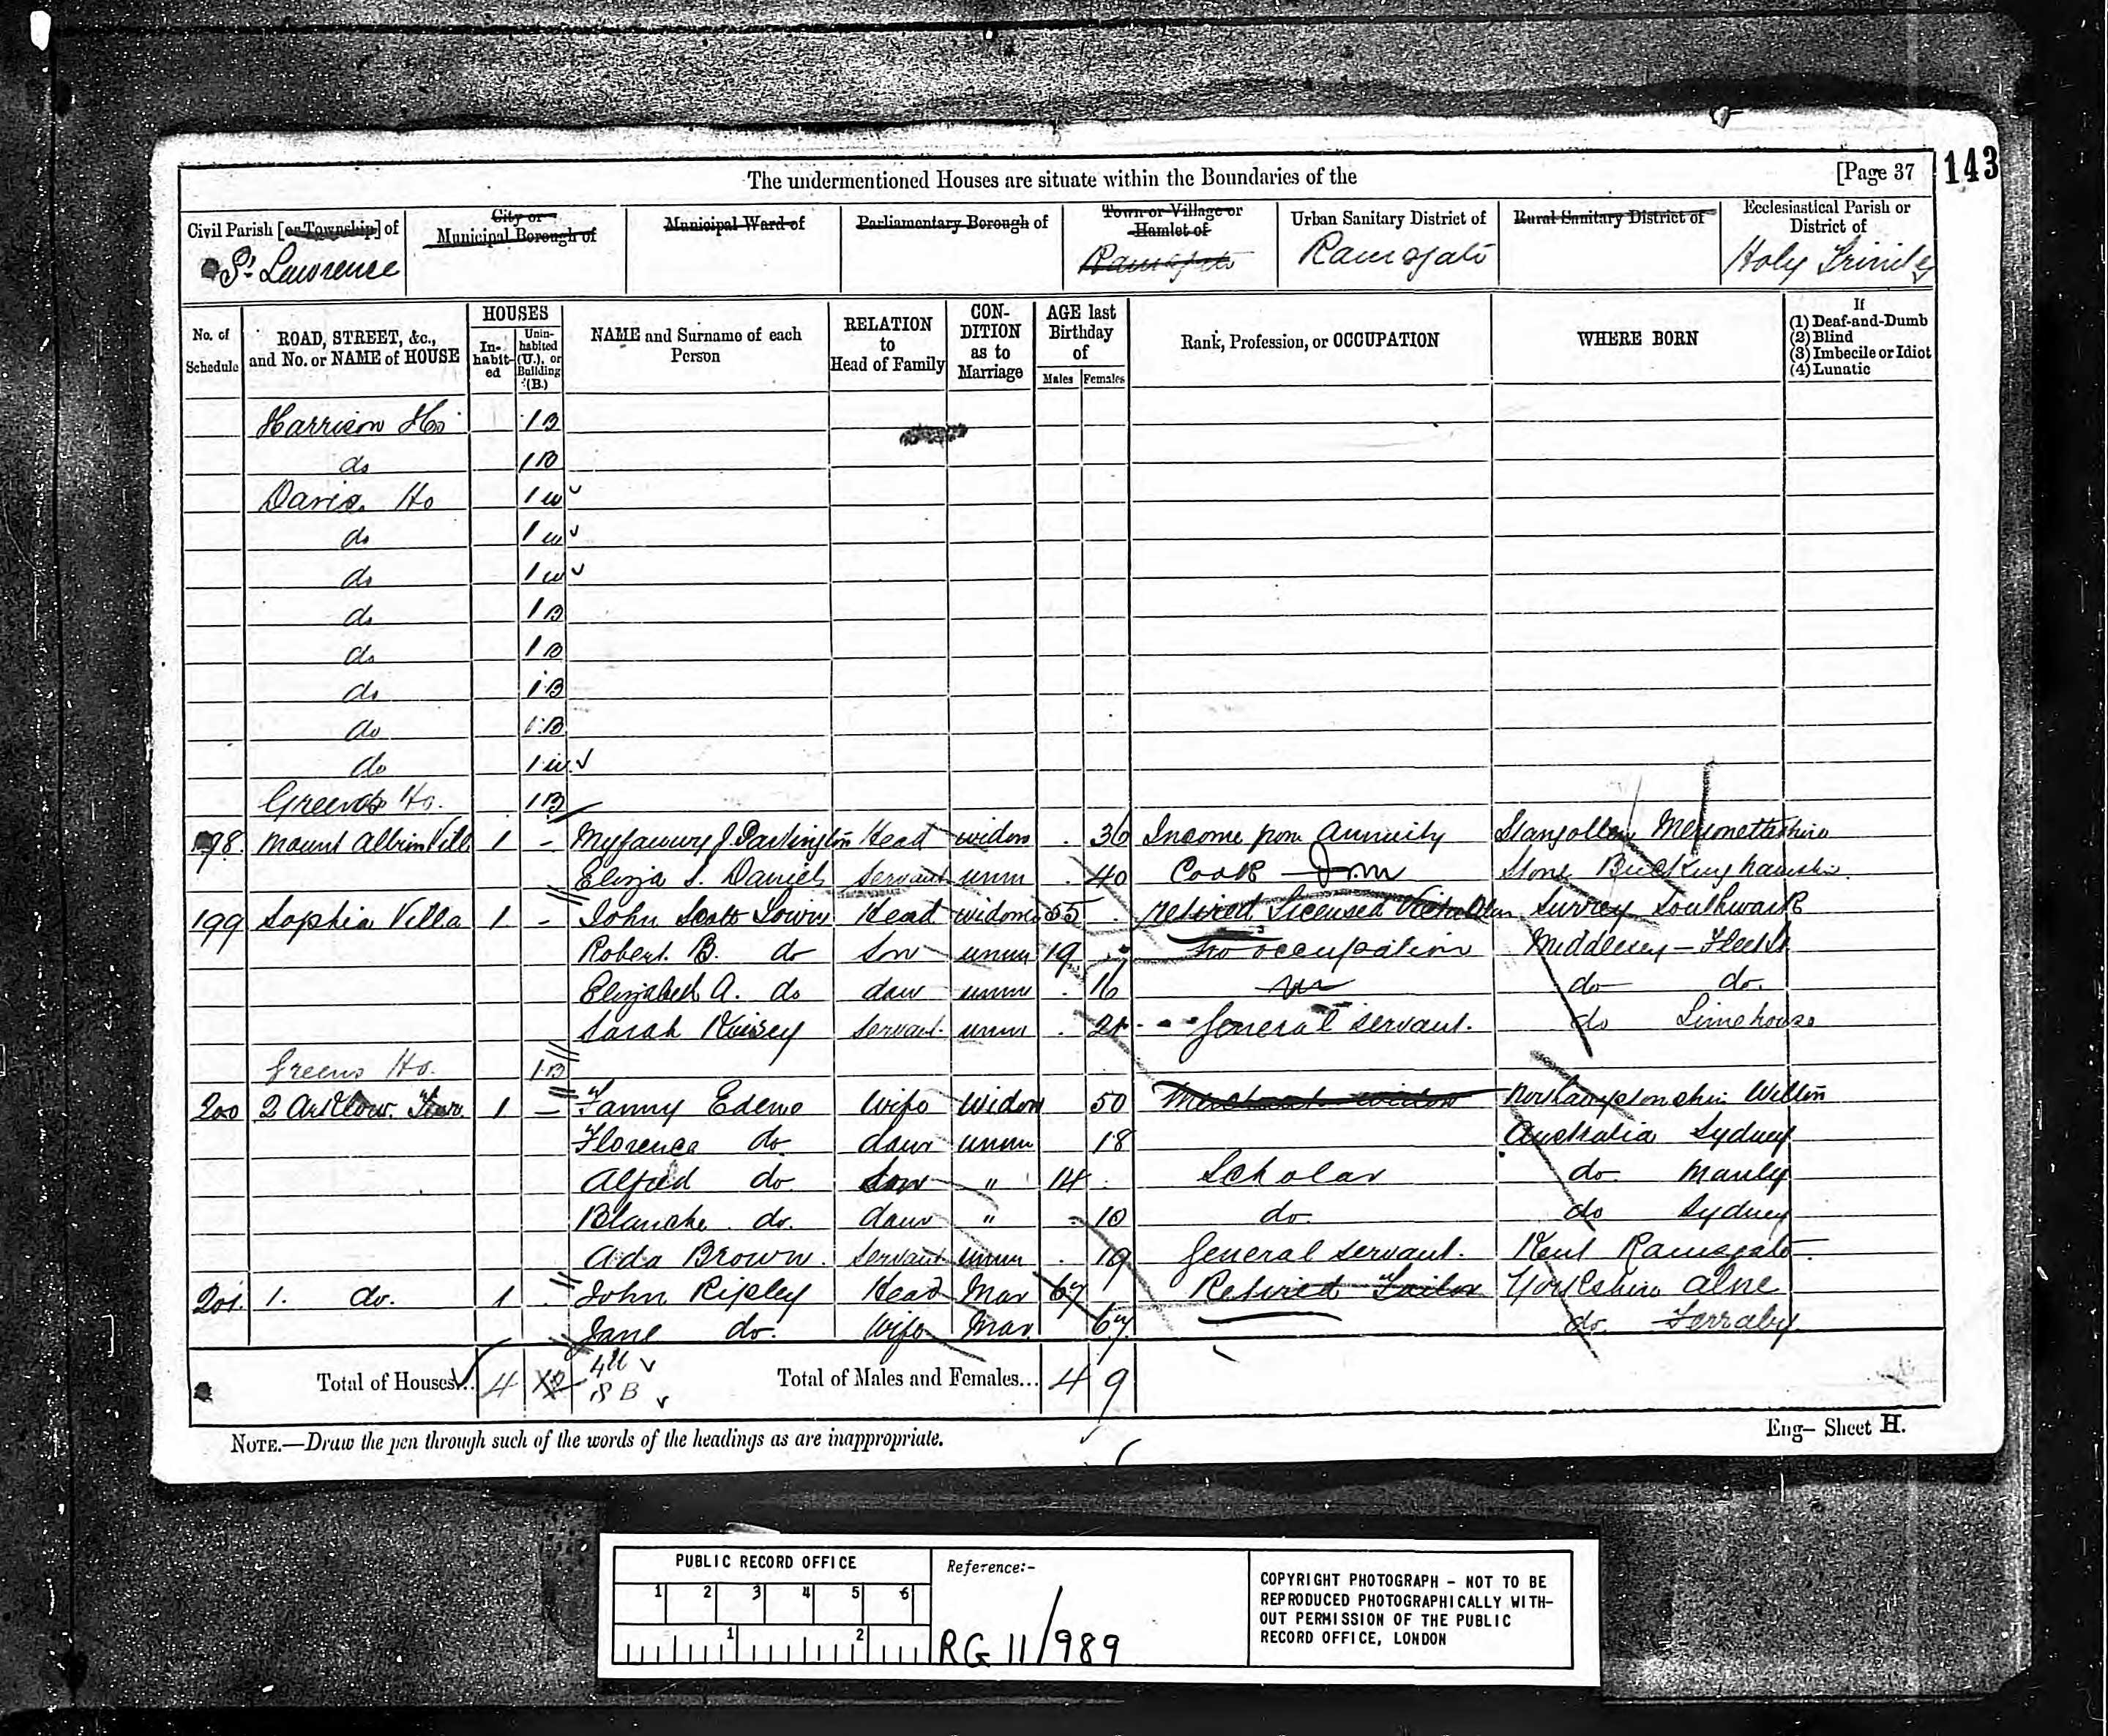 143
The undermentioned Houses are situate within the Boundaries of the [Page 37
Civil Parish [or Township] of
St Lawrence
City or Municipal Borough of
Municipal Ward of
Parliamentary Borough of
Town or Village or Hamlet of
Ramsgate
Urban Sanitary District of
Ramsgate
Rural Sanitary District of
Ecclesiastical Parish or District of
Holy Trinity
No. of Schedule
ROAD, STREET, &c., and No. or NAME of HOUSE
HOUSES
In-habit-ed
Unin-habited (U.), or Building (B.)
NAME and Surname of each Person
RELATION to Head of Family
CON-DITION as to Marriage
AGE last Birthday of
Males Females
Rank, Profession, or OCCUPATION
WHERE BORN
If
(1) Deaf-and-Dumb
(2) Blind
(3) Imbecile or Idiot
(4) Lunatic
Harrison Ho 1 B
do 1 B
Davis Ho 1 u
do 1 u
do 1 u
do 1 B
do 1 B
do 1 B
do 1 B
do 1 u
Greens Ho. 1 B
198. Mount Albion Vill 1 - J. Partington Head widow 36 Income from Annuity Llangollen Merionethshire
Eliza S. Daniels Servant unm 40 Cook Dom Stone Buckinghamshi.
199 Sophia Villa 1 - John Scott Head widower 55 retired Licensed Victualler Surrey Southwark
Robert B. do Son unm 19 no occupation Middlesex - Fleet St
Elizabeth A. do daur unmr 16 do do.
Sarah Servant. unmr 21 General Servant. do Limehouse
Greens Ho. 1 B
200 2 Terr. 1 - Fanny Edene Wife Widow 50 Merchant widow Northamptonshire
Florence do. daur unmr 18 Australia Sydney
Alfred do. Son " 14 Scholar do. Manly
Blanche do. daur " 10 do. do Sydney
Ada Brown. Servant unmr 19 General Servant. Kent Ramsgate
201. 1. do. 1 John Ripley Head Mar 67 Retired Tailor Yorkshire Alne
Jane do. Wife Mar 67 do. Ferraby
Total of Houses... 4 12 4 U
8 B
Total of Males and Females... 4 9
NOTE.—Draw the pen through such of the words of the headings as are inappropriate.
Eng- Sheet H.
PUBLIC RECORD OFFICE
1 2 3 4 5 6
1 2
Reference:-
RG 11/989
COPYRIGHT PHOTOGRAPH - NOT TO BE
REPRODUCED PHOTOGRAPHICALLY WITH-
OUT PERMISSION OF THE PUBLIC
RECORD OFFICE, LONDON